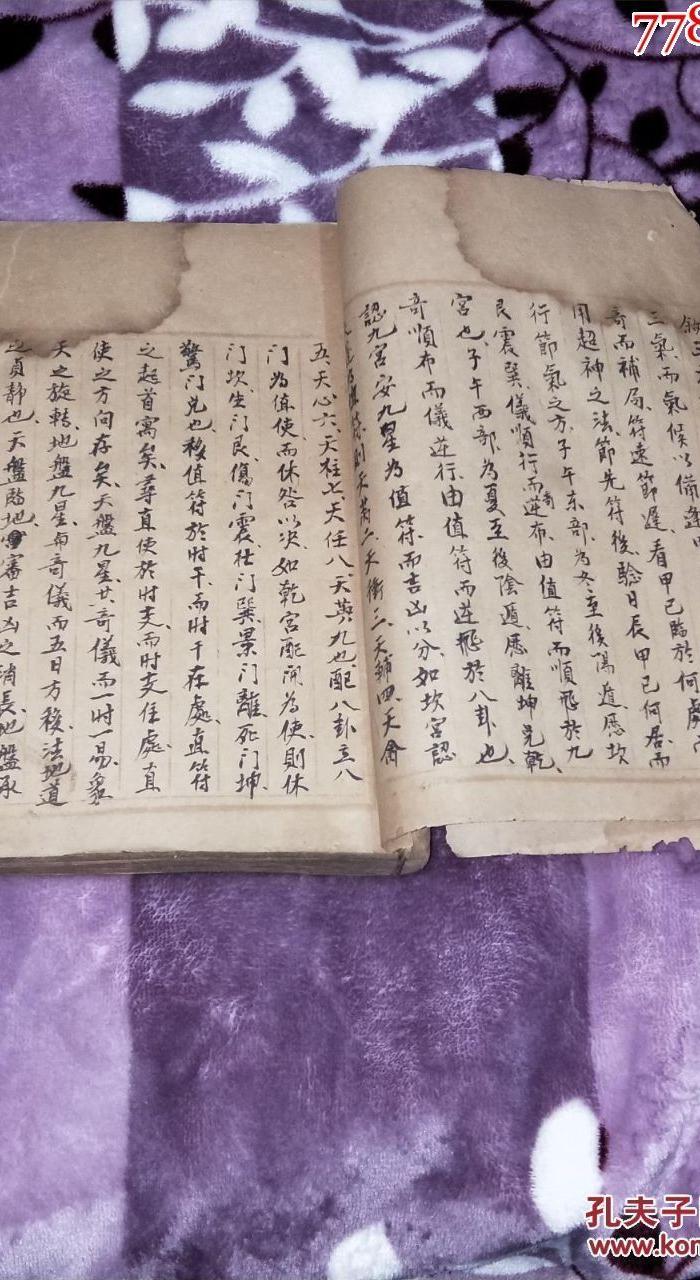 778
三氣、而氣候以備
奇而補局、符遠節遲、看甲己臨於何處
用超神之法、節先符後、驗日辰甲己何居、而
行節氣之方、子午東部、為冬至後陽遁、歷坎
艮震巽、儀順行而奇逆布、由值符而順飛於九
宮也、子午西部、為夏至後陰遁、歷離坤兌乾、
奇順布而儀逆行、由值符而逆飛於八卦也、
認九宮安九星為值符、而吉凶以分、如坎宮認
值符、則天芮二、天衝三、天輔四、天禽
五、天心六、天柱七、天任八、天英九也、配八卦立八
門為值使、而休咎以決、如乾宮配開為使、則休
門坎、生門艮、傷門震、杜門巽、景門離、死門坤、
驚門兌也、移值符於時干、而時干在處、直符
之起首寓矣、尋直使於時支、而時支任處、直
使之方向存矣、天盤九星、廿奇儀而一時一易、象
天之旋轉、地盤九星、与奇儀而五日方移、法地道
之貞靜也、天盤臨地、審吉凶之消長、地盤承
孔夫子
www.kon